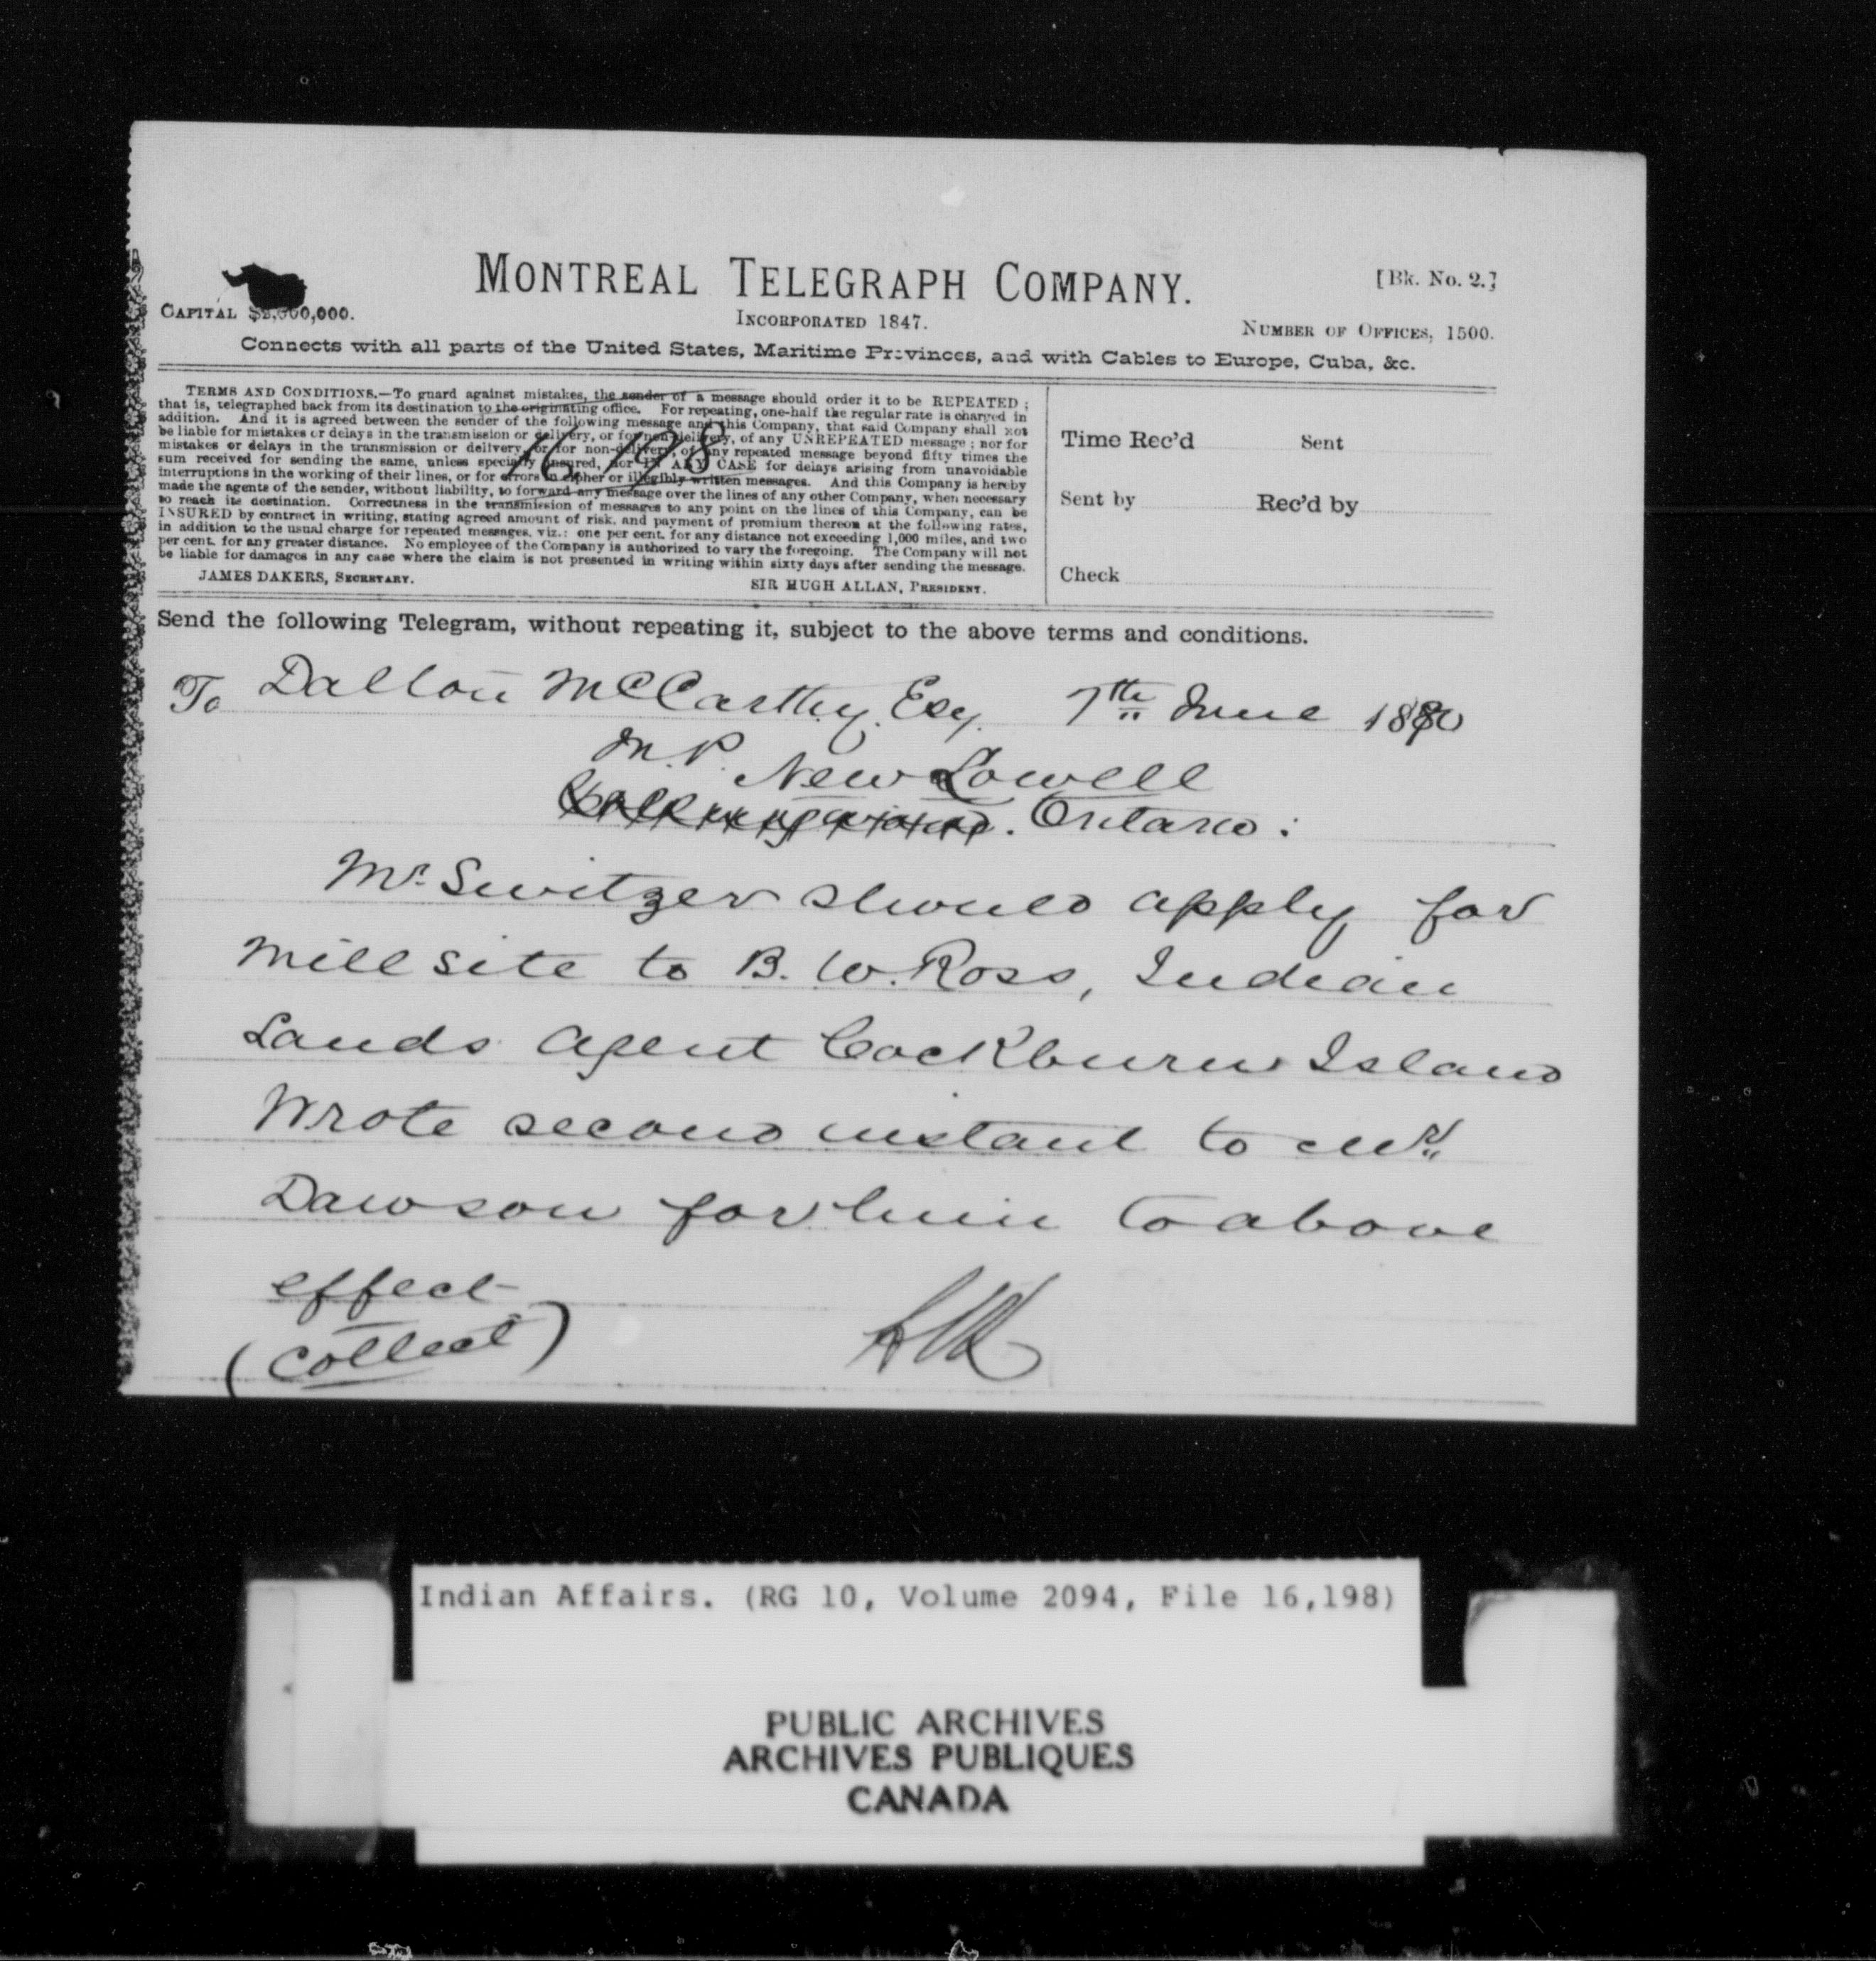 MONTREAL TELEGRAPH COMPANY.
[Bk. No. 2.]
CAPITAL $2,000,000.
INCORPORATED 1847.
NUMBER OF OFFICES, 1500.
Connects with all parts of the United States, Maritime Provinces, and with Cables to Europe, Cuba, &c.
TERMS AND CONDITIONS.—To guard against mistakes, the sender of a message should order it to be REPEATED;
that is, telegraphed back from its destination to the originating office. For repeating, one-half the regular rate is charged in
addition. And it is agreed between the sender of the following message and this Company, that said Company shall not
be liable for mistakes or delays in the transmission or delivery, or for non-delivery, of any UNREPEATED message; nor for
mistakes or delays in the transmission or delivery, or for non-delivery, of any repeated message beyond fifty times the
sum received for sending the same, unless specially insured, nor IN ANY CASE for delays arising from unavoidable
interruptions in the working of their lines, or for errors in cipher or illegibly written messages. And this Company is hereby
made the agents of the sender, without liability, to forward any message over the lines of any other Company, when necessary
to reach its destination. Correctness in the transmission of messages to any point on the lines of this Company, can be
INSURED by contract in writing, stating agreed amount of risk, and payment of promium thereon at the following rates,
in addition to the usual charge for repeated messages, viz.: one per cent. for any distance not exceeding 1,000 miles, and two
per cent. for any greater distance. No employee of the Company is authorized to vary the foregoing. The Company will not
be liable for damages in any case where the claim is not presented in writing within sixty days after sending the message.
JAMES DAKERS, SECRETARY.
SIR HUGH ALLAN, PRESIDENT.
16,198
Time Rec'd Sent
Sent by Rec'd by
Check
Send the following Telegram, without repeating it, subject to the above terms and conditions.
To Dalton McCarthy Esq. 7th June 1880
M.P. New Lowell
Collingwood. Ontario:
Mr. Switzer should apply for
mill site to B. W. Ross, Indian
Lands Agent Cockburn Island
Wrote second instant to Mr.
Dawson for him to above
effect
(Collect)
Indian Affairs. (RG 10, Volume 2094, File 16,198)
PUBLIC ARCHIVES
ARCHIVES PUBLIQUES
CANADA